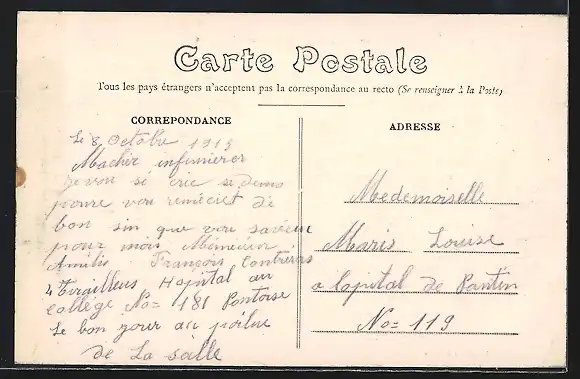 Carte Postale
Tous les pays étrangers n'acceptent pas la correspondance au recto (Se renseigner à la Poste)
CORREPONDANCE
Le 8 Octobre 1915
Machèr infirmierer
je vou sé crie se demo
poure vou remècièt de
bon sin que vou
pour mois
Amitié François Contreras
4 Tirailleus Hopital au
collége No= 181 Pontoise
Le bon jour au poilue
de La salle
ADRESSE
Medemoiselle
Maris Louise
a lopital de Pantin
No= 119